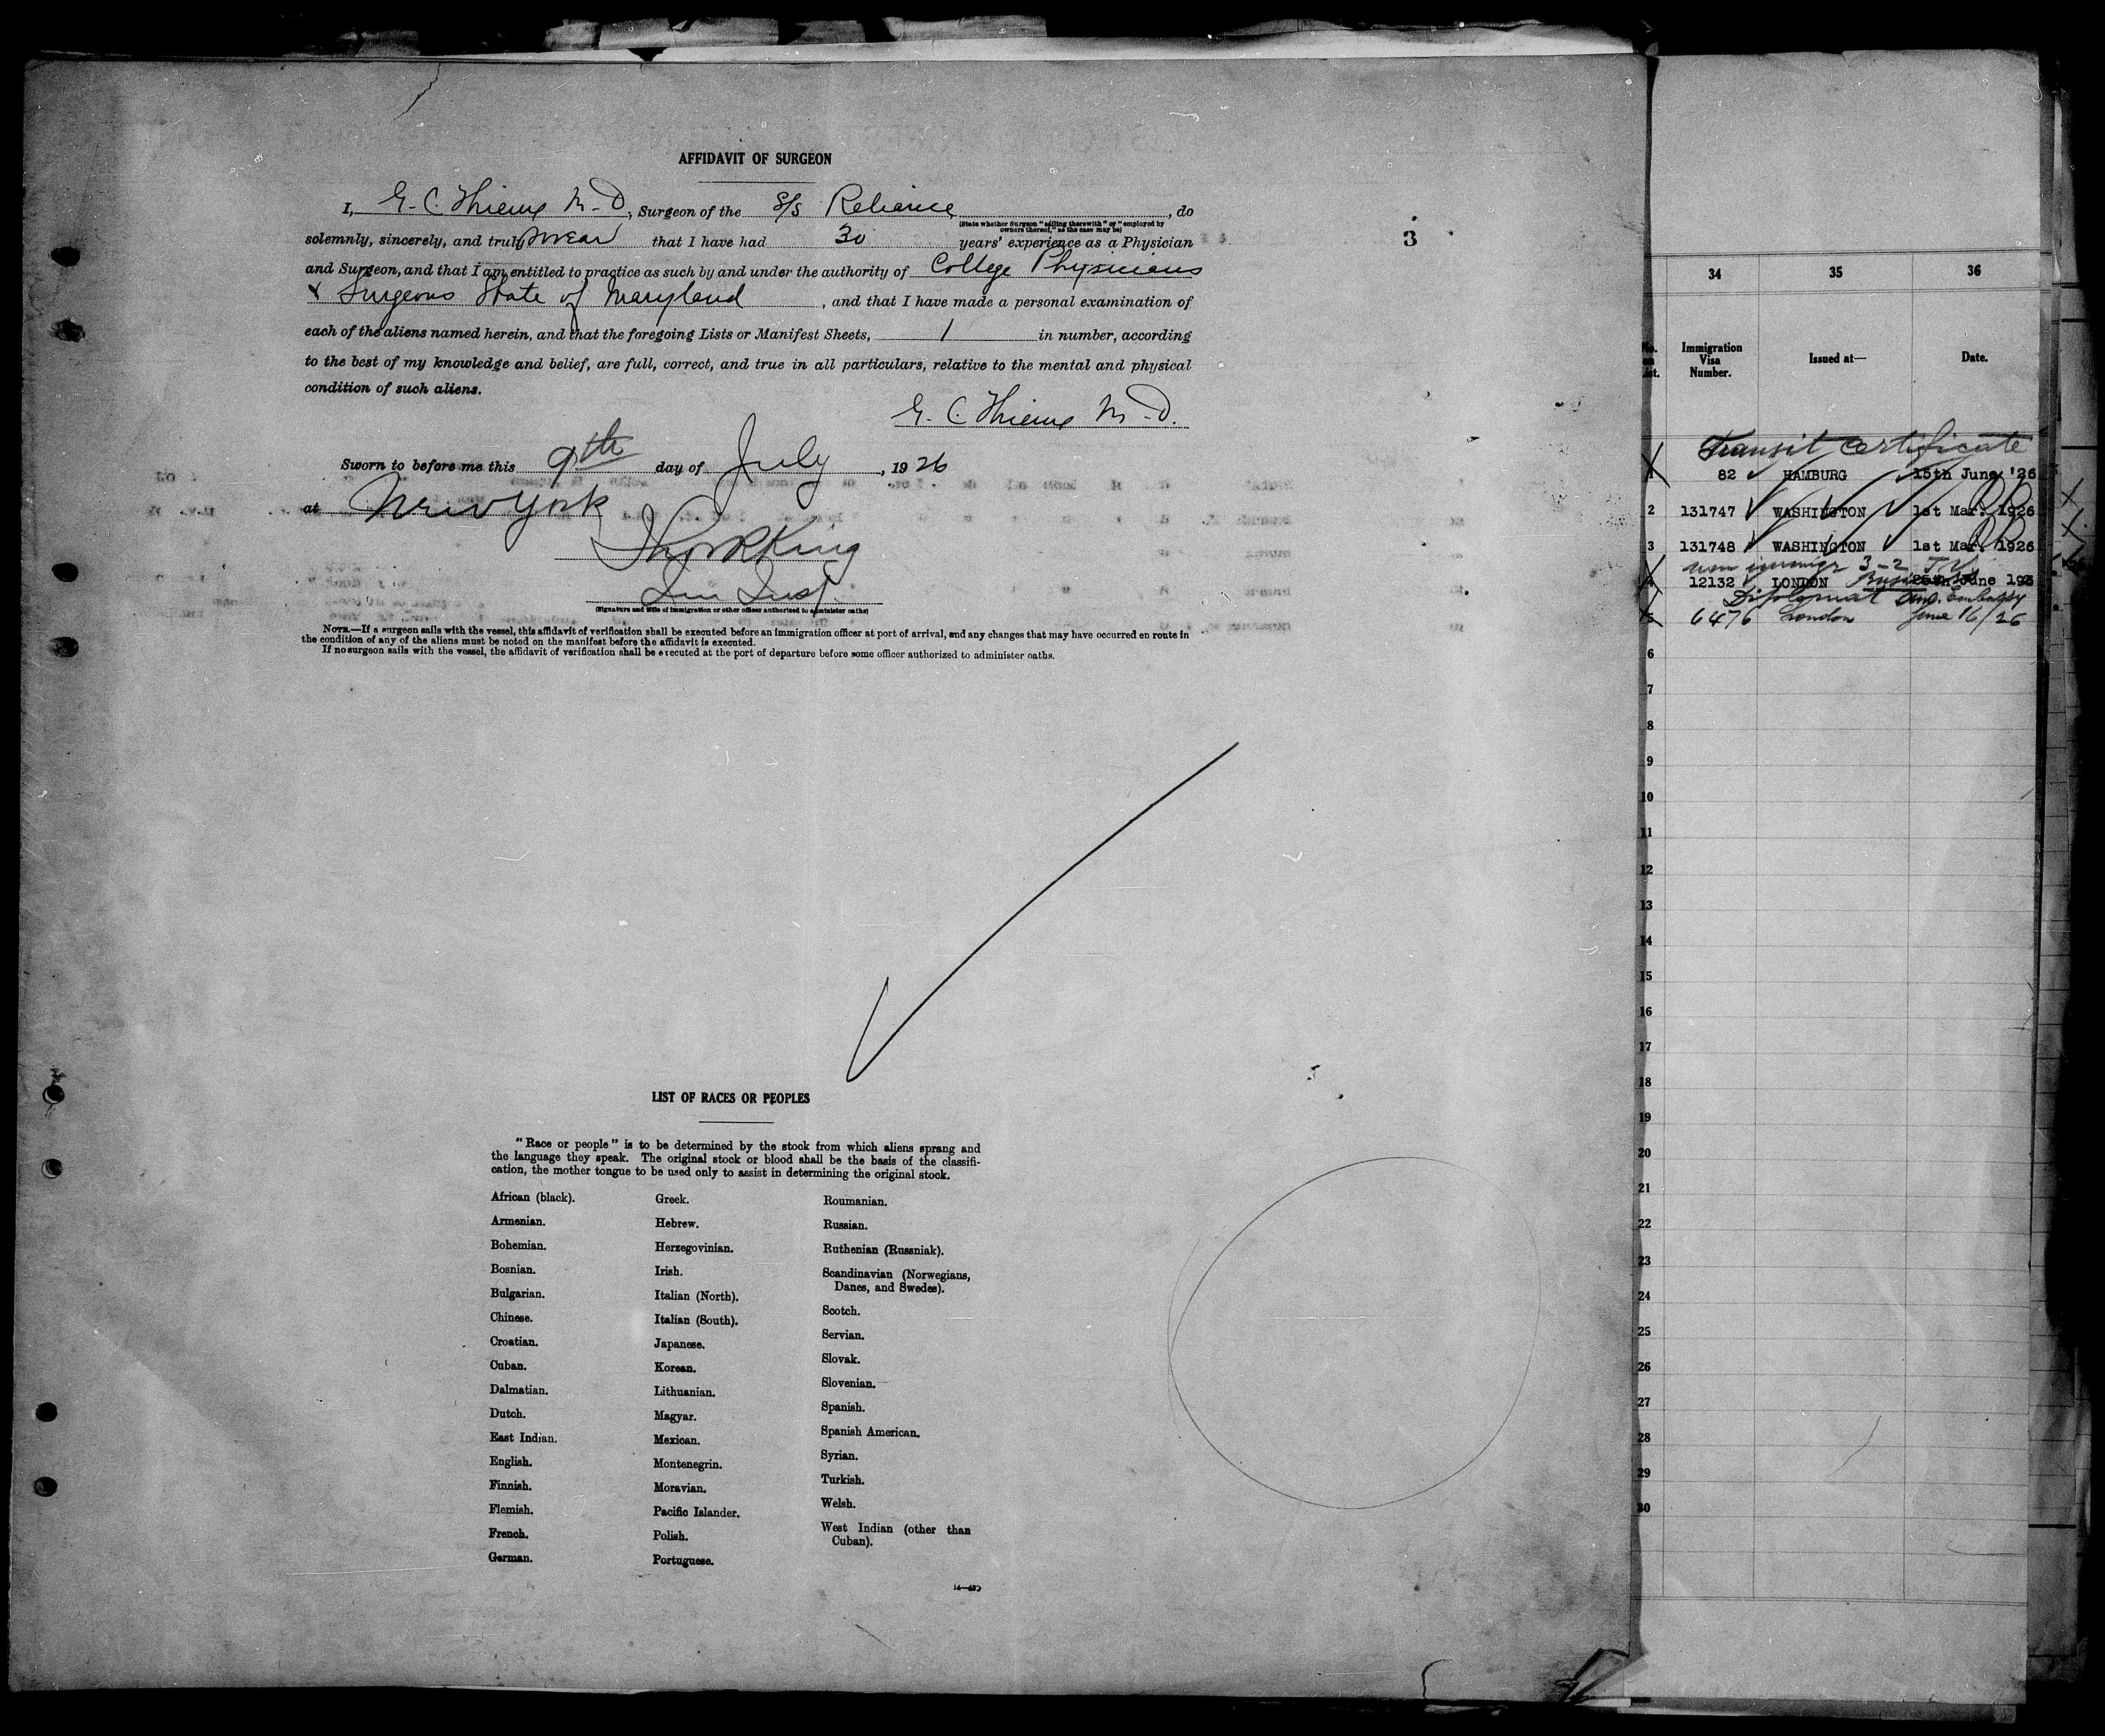 AFFIDAVIT OF SURGEON
I, G. C. Thieme M-D, Surgeon of the S/s Reliance, do
(State whether Surgeon "sailing therewith" or "employed by
owners thereof," as the case may be)
solemnly, sincerely, and truly swear that I have had 30 years' experience as a Physician
and Surgeon, and that I am entitled to practice as such by and under the authority of College Physicians
& Surgeons State of Maryland, and that I have made a personal examination of
each of the aliens named herein, and that the foregoing Lists or Manifest Sheets, 1 in number, according
to the best of my knowledge and belief, are full, correct, and true in all particulars, relative to the mental and physical
condition of such aliens.
G. C. Thieme M-D.
Sworn to before me this 9th day of July, 1926
at New York
King
(Signature and title of immigration or other officer authorized to administer oaths)
NOTE.—If a surgeon sails with the vessel, this affidavit of verification shall be executed before an immigration officer at port of arrival, and any changes that may have occurred en route in
the condition of any of the aliens must be noted on the manifest before the affidavit is executed.
If no surgeon sails with the vessel, the affidavit of verification shall be executed at the port of departure before some officer authorized to administer oaths.
3
LIST OF RACES OR PEOPLES
"Race or people" is to be determined by the stock from which aliens sprang and
the language they speak. The original stock or blood shall be the basis of the classifi-
cation, the mother tongue to be used only to assist in determining the original stock.
African (black).
Armenian.
Bohemian.
Bosnian.
Bulgarian.
Chinese.
Croatian.
Cuban.
Dalmatian.
Dutch.
East Indian.
English.
Finnish.
Flemish.
French.
German.
Greek.
Hebrew.
Herzegovinian.
Irish.
Italian (North).
Italian (South).
Japanese.
Korean.
Lithuanian.
Magyar.
Mexican.
Montenegrin.
Moravian.
Pacific Islander.
Polish.
Portuguese.
Roumanian.
Russian.
Ruthenian (Russniak).
Scandinavian (Norwegians,
Danes, and Swedes).
Scotch.
Servian.
Slovak.
Slovenian.
Spanish.
Spanish American.
Syrian.
Turkish.
Welsh.
West Indian (other than
Cuban).
34 35 36
No. on List. Immigration Visa Number. Issued at— Date.
Transit Certificate
1 82 HAMBURG 15th June '26
2 131747 WASHINGTON 1st Mar. 1926
3 131748 WASHINGTON 1st Mar. 1926
non immigr 3-2 T.V.
4 12132 LONDON June 192
Diplomat Embassy
5 6476 London June 16/26
6
7
8
9
10
11
12
13
14
15
16
17
18
19
20
21
22
23
24
25
26
27
28
29
30